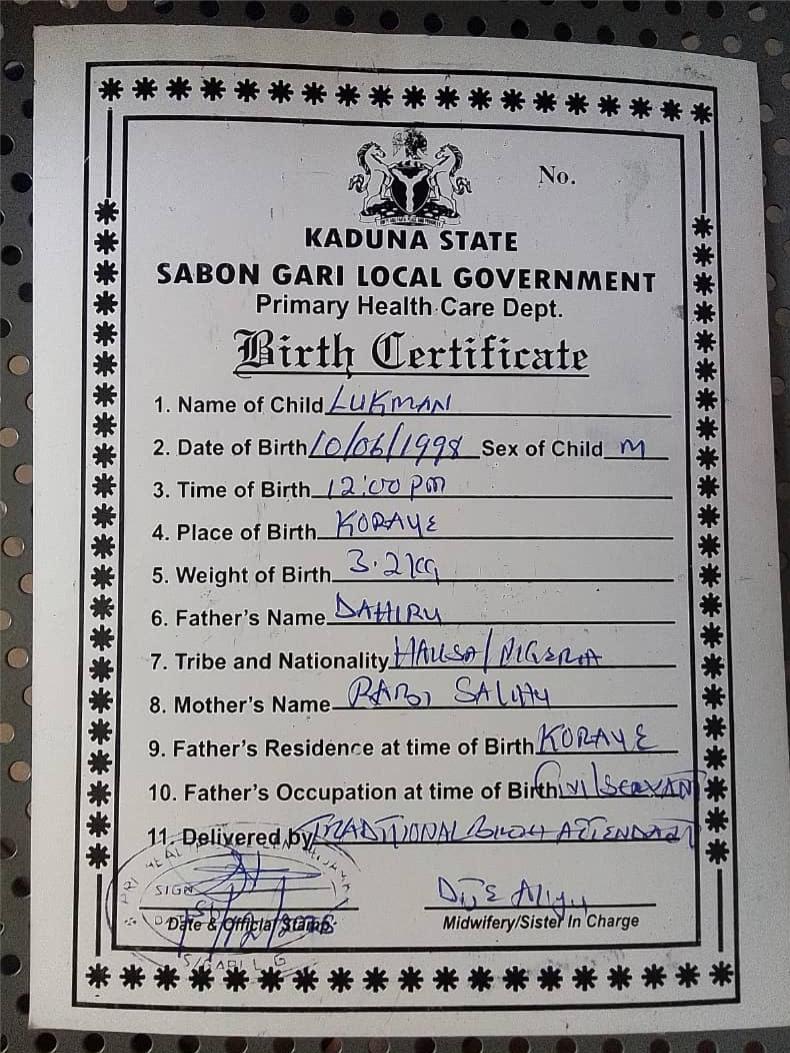 No.
KADUNA STATE
SABON GARI LOCAL GOVERNMENT
Primary Health Care Dept.
Birth Certificate
1. Name of Child LUKMAN
2. Date of Birth 10/06/1998 Sex of Child M
3. Time of Birth 12:00 pm
4. Place of Birth KORAYE
5. Weight of Birth 3.2kg
6. Father's Name DAHIRU
7. Tribe and Nationality HAUSA/NIGERIA
8. Mother's Name RABI SALIHU
9. Father's Residence at time of Birth KORAYE
10. Father's Occupation at time of Birth CIVIL SERVANT
11. Delivered by TRADITIONAL BIRTH ATTENDANT
SIGN
Dije Aliyu
Date & Official Stamp
Midwifery/Sister In Charge
S/GARI L.G